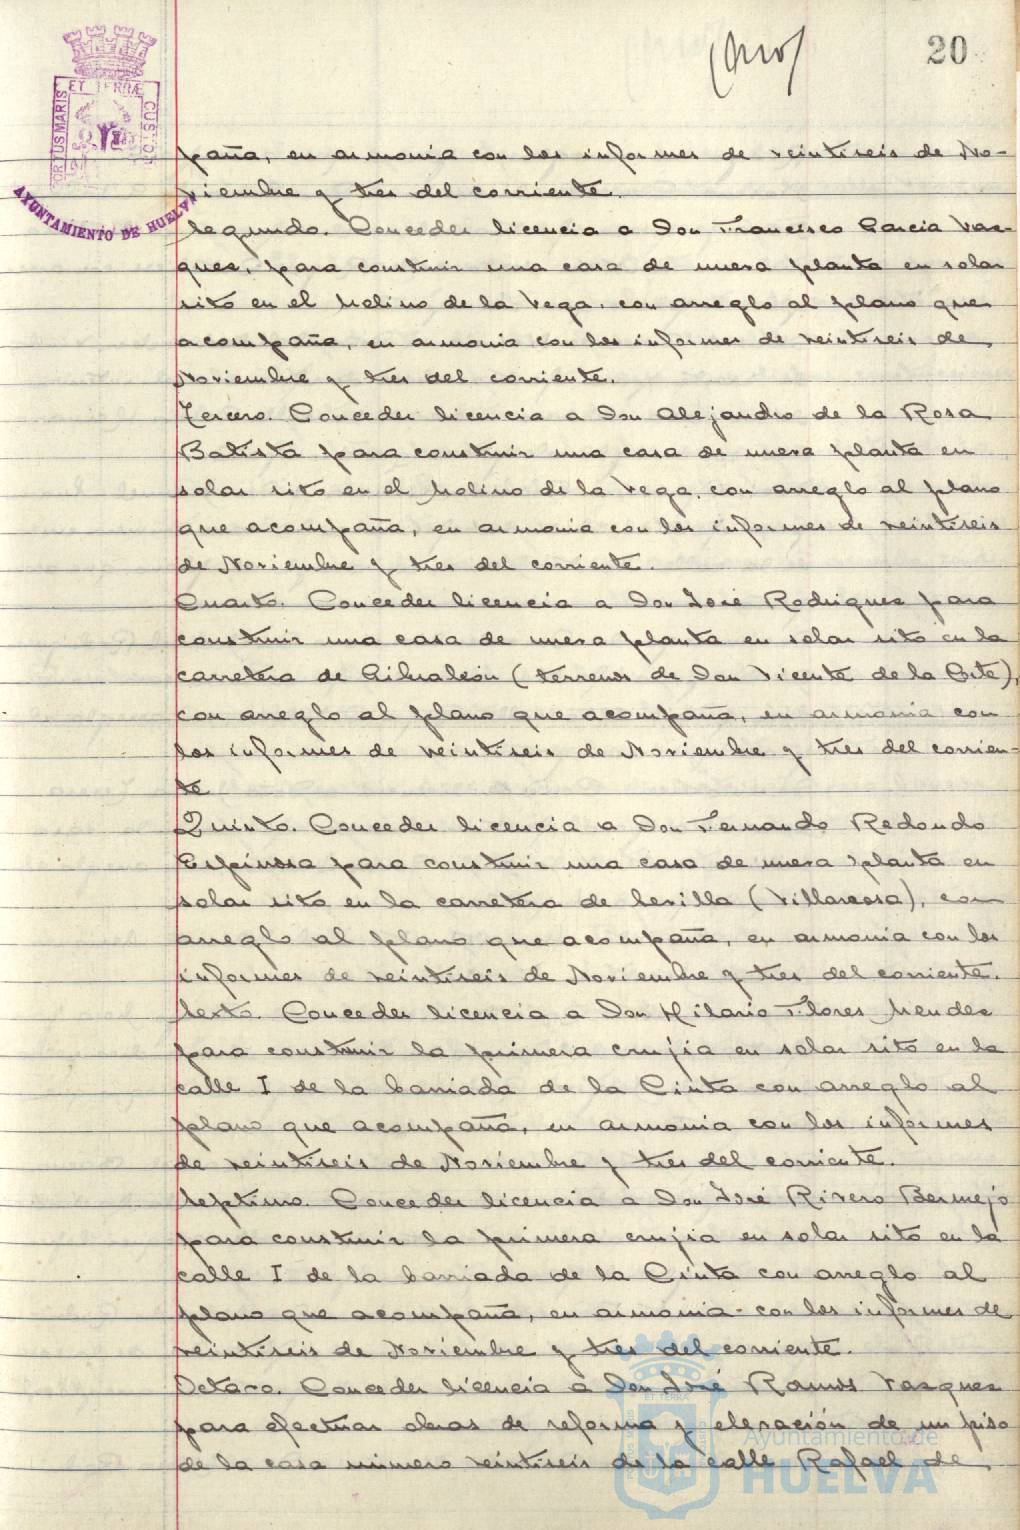 20
PORTUS MARIS
ET TERRÆ
CUSTO
AYUNTAMIENTO DE HUELVA
paña, en armonia con los informes de veintiseis de No-
viembre y tres del corriente.
Segundo. Conceder licencia a Don Francisco Garcia Vaz-
quez, para construir una casa de nueva planta en solar
sito en el Molino de la Vega, con arreglo al plano que
acompaña, en armonia con los informes de veintiseis de
Noviembre y tres del corriente.
Tercero. Conceder licencia a Don Alejandro de la Rosa
Batista para construir una casa de nueva planta en
solar sito en el Molino de la Vega, con arreglo al plano
que acompaña, en armonia con los informes de veintiseis
de Noviembre y tres del corriente.
Cuarto. Conceder licencia a Don José Rodriguez para
construir una casa de nueva planta en solar sito en la
carretera de Gibraleón (terrenos de Don Vicente de la Corte),
con arreglo al plano que acompaña, en armonia con
los informes de veintiseis de Noviembre y tres del corrien-
te
Quinto. Conceder licencia a Don Fernando Redondo
Espinosa para construir una casa de nueva planta en
solar sito en la carretera de Sevilla (Villarrosa), con
arreglo al plano que acompaña, en armonia con los
informes de veintiseis de Noviembre y tres del corriente.
Sexto. Conceder licencia a Don Hilario Flores Mendez
para construir la primera crujia en solar sito en la
calle I de la barriada de la Cinta con arreglo al
plano que acompaña, en armonia con los informes
de veintiseis de Noviembre y tres del corriente.
Septimo. Conceder licencia a Don José Rivero Bermejo
para construir la primera crujia en solar sito en la
calle I de la barriada de la Cinta con arreglo al
plano que acompaña, en armonia con los informes de
veintiseis de Noviembre y tres del corriente.
Octavo. Conceder licencia a Don José Ramos Vazquez
para efectuar obras de reforma y elevación de un piso
de la casa número veintiseis de la calle Rafael de
Ayuntamiento de
HUELVA